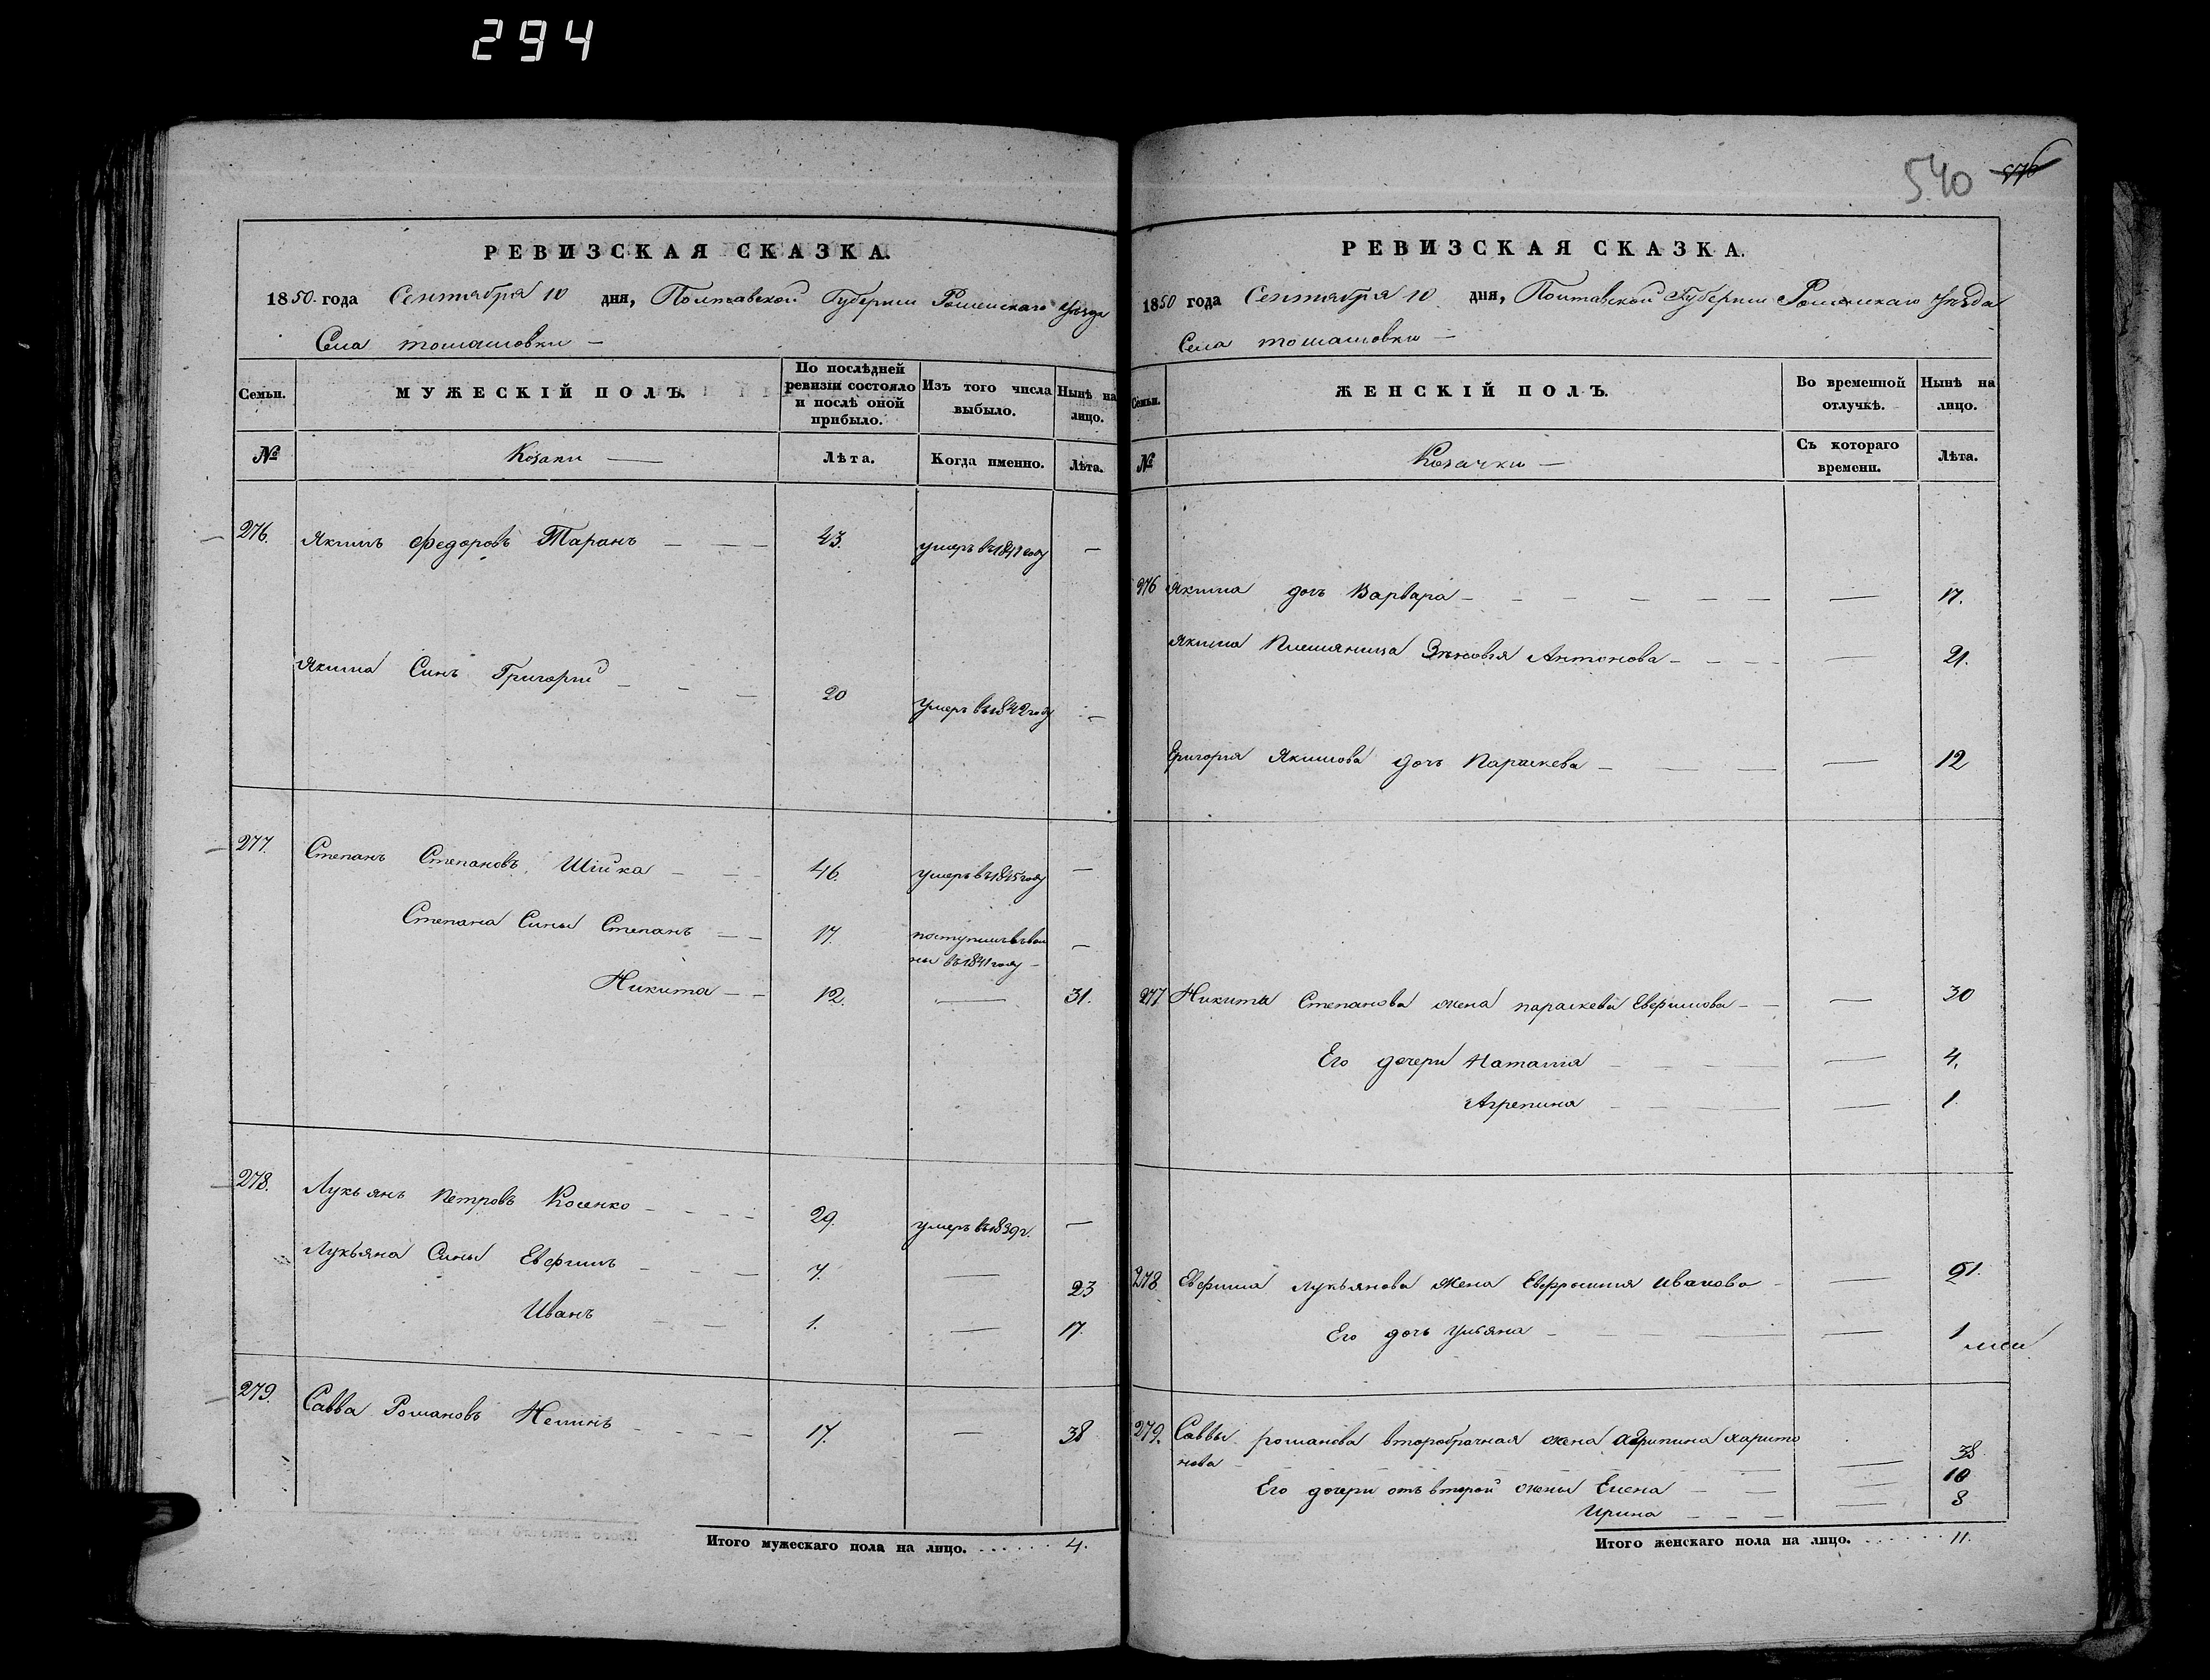 294
540
РЕВИЗСКАЯ СКАЗКА.
1850 года Сентября 10 дня, Полтавской Губернии Роменскаго уѣзда
Села томашовки —
Семьи. МУЖЕСКІЙ ПОЛЪ. По послѣдней ревизіи состояло и послѣ оной прибыло. Изъ того числа выбыло. Нынѣ на лицо.
№ Козаки — Лѣта. Когда именно. Лѣта.
276. Якимъ Федоровъ Таранъ — — — 43. умеръ въ году —
Якима Синъ Григорий — — — 20 умеръ въ 1842 году —
277. Степанъ Степановъ Шийка — — 46. умеръ въ 1845 году —
Степана Сины Степанъ — — 17. поступилъ въ вои
ны въ 1841 году — —
Никита — — 12. — 31.
278. Лукьянъ Петровъ Косенко — — — — 29. умеръ въ 1839 г. —
Лукьяна Сины Евфимъ — — — 7. — 23
Иванъ — — 1. — 17.
279. Савва Романовъ — — — — 17. — 38
Итого мужескаго пола на лицо. 4.
РЕВИЗСКАЯ СКАЗКА.
1850 года Сентября 10 дня, Полтавской Губернии Роменскаго уѣзда
Села томашовки —
Семьи. ЖЕНСКІЙ ПОЛЪ. Во временной отлучкѣ. Нынѣ на лицо.
№ Козачки — Съ котораго времени. Лѣта.
276 Якима дочь Варвара — — — — — — — — 17.
Якима Племяница Зѣновія Антонова — — — — — 21.
Григорія Якимова дочь Параскева — — — — 12
277 Никиты Степанова жена параскева Евфимова — — — 30
Его дочери Наталія — — — — — 4.
Агрепина — — — — — 1.
278 Евфима Лукьянова жена Евфросинія иванова — — 21.
Его дочь Ульяна — — — — 1
279. Саввы романова второбрачная жена харито
нова — — — 38
Его дочери отъ второй жены Елена — — — 10
Ирина — — — — 8
Итого женскаго пола на лицо. 11.